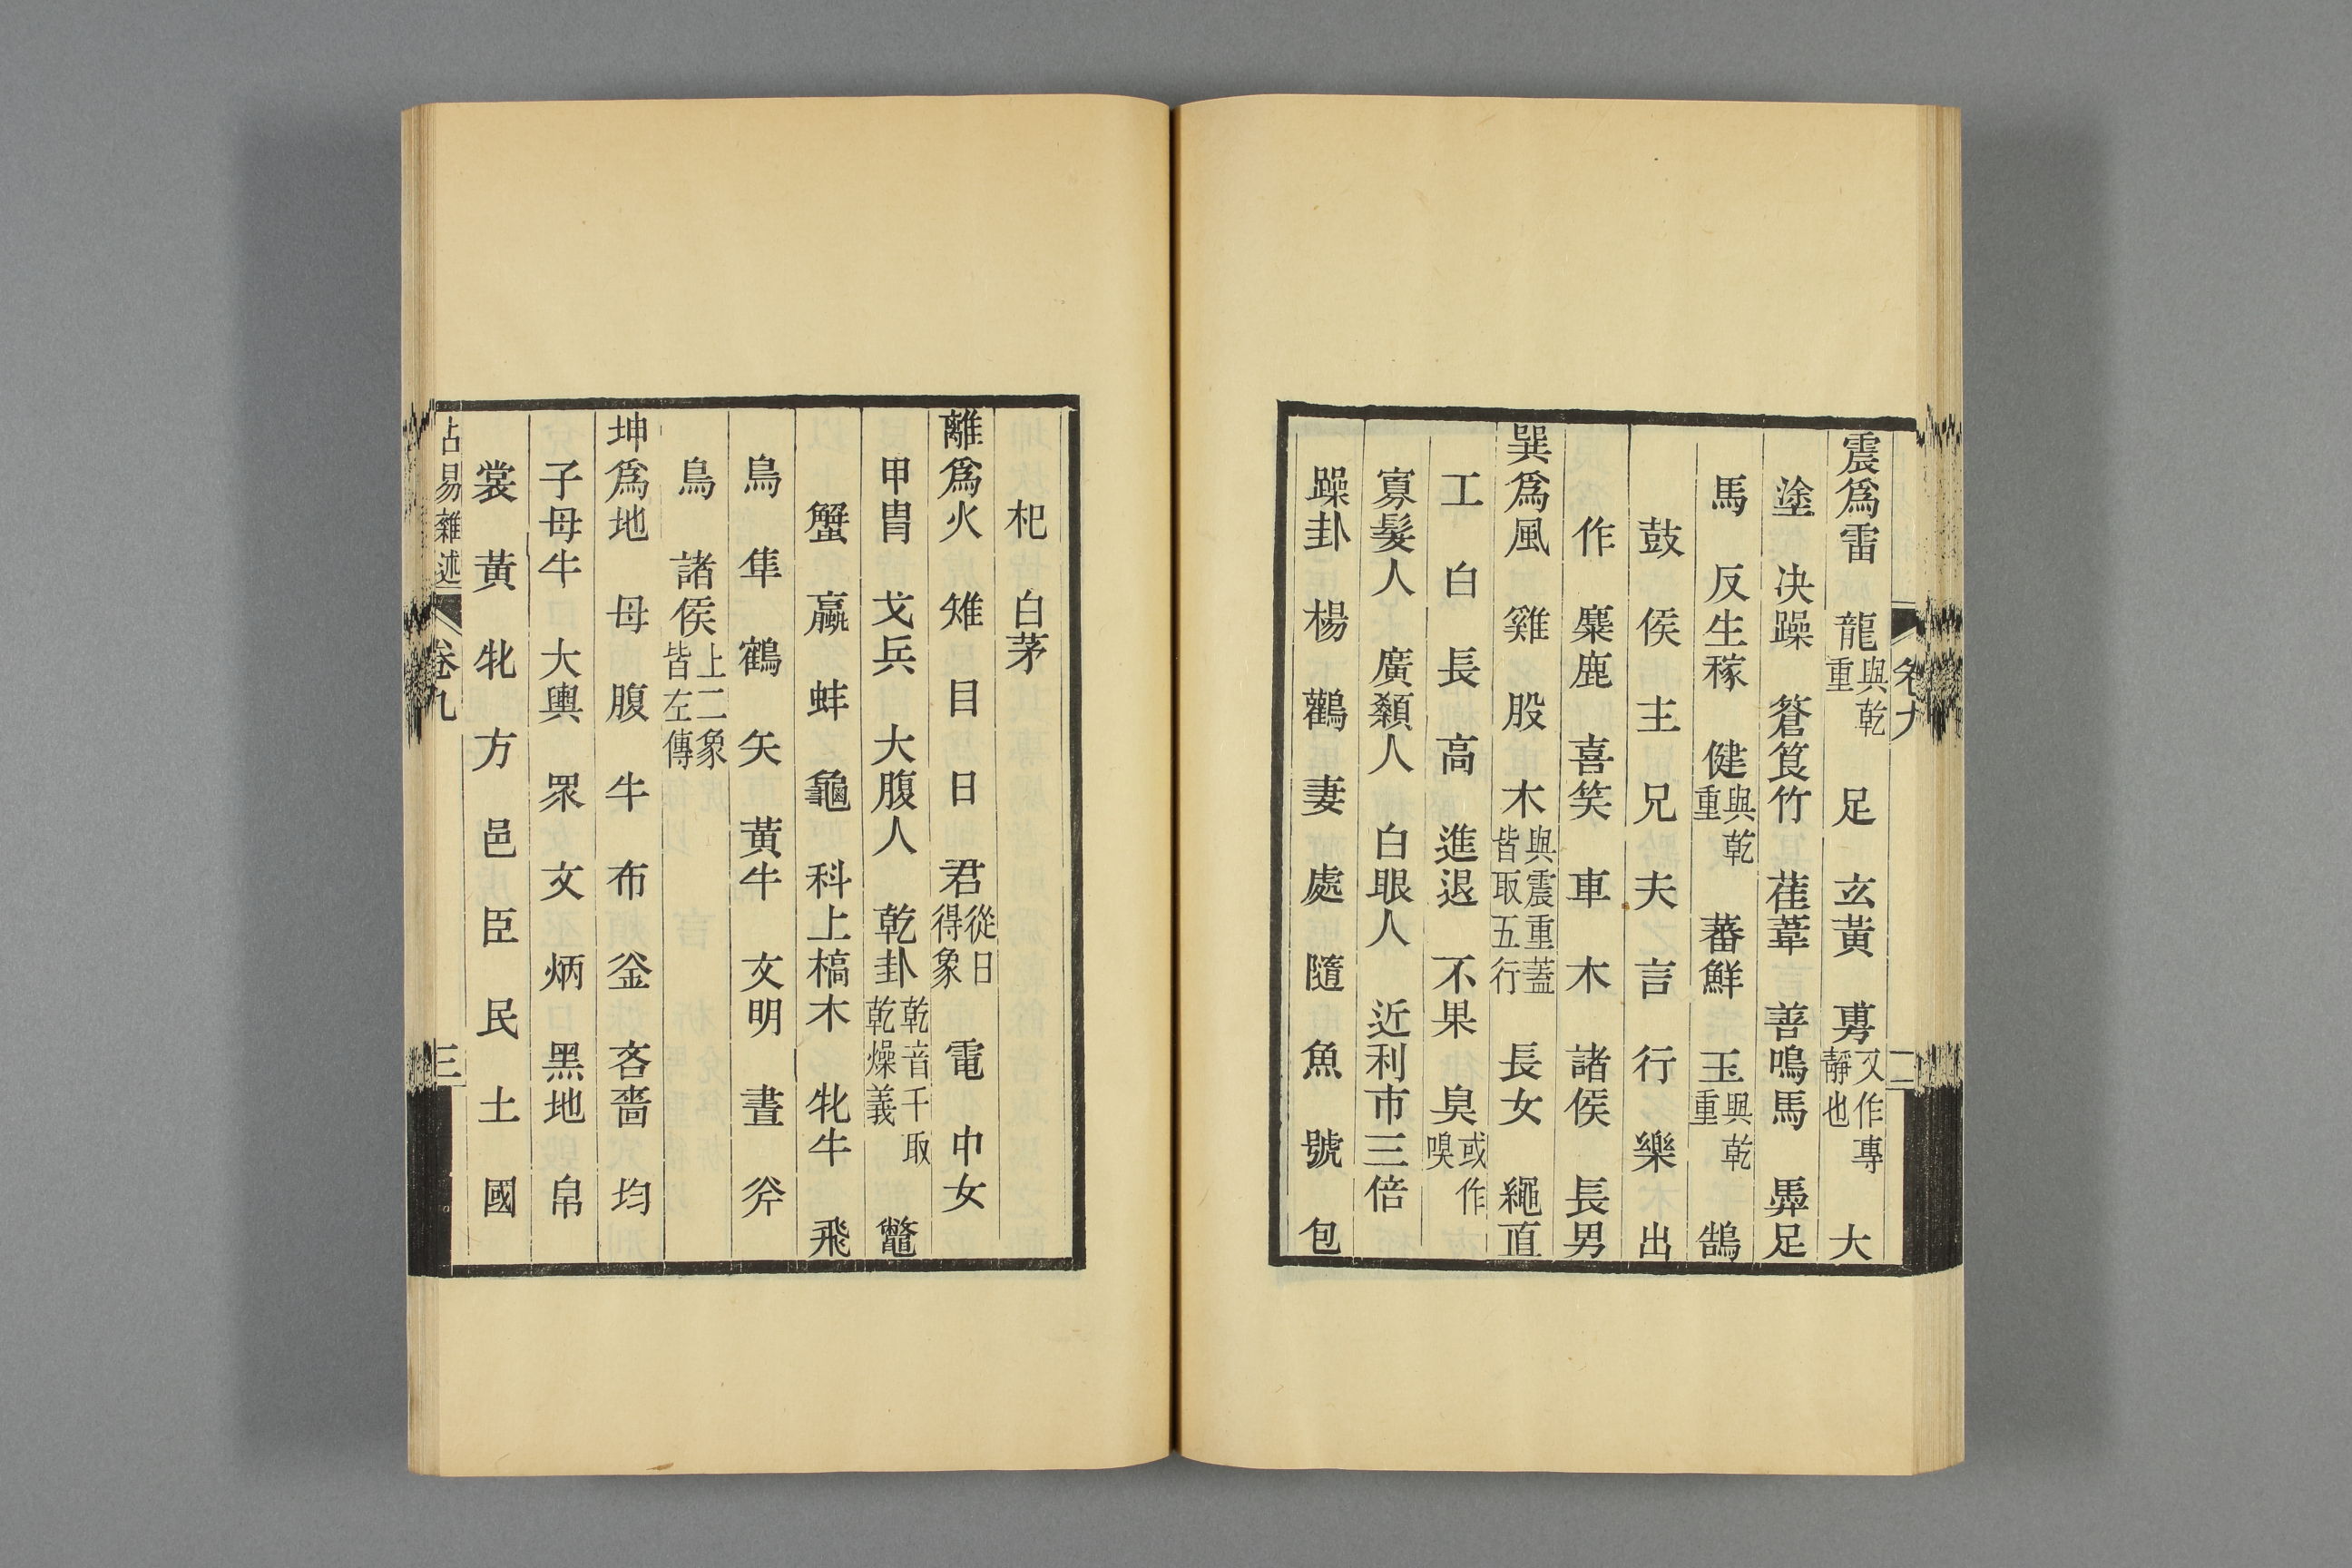 震爲雷　龍與乾重　足　玄黃　旉又作專靜也　大
塗　决躁　蒼筤竹　萑葦　善鳴馬　馵足
馬　反生稼　健與乾重　蕃鮮　玉與乾重　鵠
鼓　侯　主　兄　夫　言　行　樂　出
作　麋鹿　喜笑　車　木　諸侯　長男
巽爲風　雞　股　木與震重蓋皆取五行　長女　繩直
工　白　長　高　進退　不果　臭或作嗅
寡髮人　廣顙人　白眼人　近利市三倍
躁卦　楊　鸛　妻　處　隨　魚　號　包
杞　白茅
離爲火　雉　目　日　君從日得象　電　中女
甲冑　戈兵　大腹人　乾卦乾音千取乾燥義　鼈
蟹　蠃　蚌　龜　科上槁木　牝牛　飛
鳥　隼　鶴　矢　黃牛　文明　晝　斧
鳥　諸侯上二象皆左傳
坤爲地　母　腹　牛　布　釜　吝嗇　均
子母牛　大輿　眾　文　炳　黑地　帛
裳　黃　牝　方　邑　臣　民　土　國
占易雜述　卷九　三